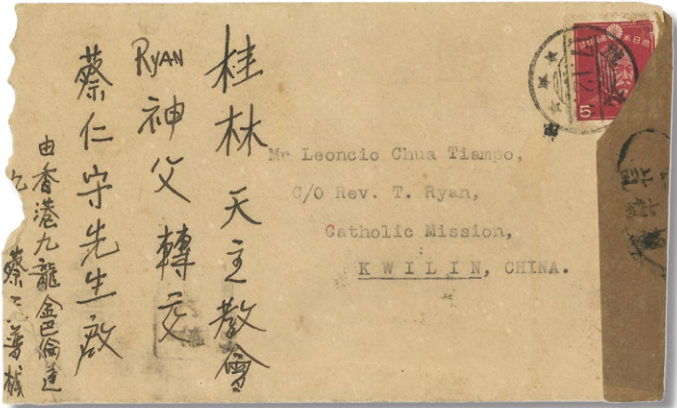 桂林天主教會
RYAN 神父轉交
蔡仁守先生啟
由香港九龍金巴倫道
蔡
Mr Leoncio Chua Tiampo,
C/O Rev. T. Ryan,
Catholic Mission,
KWILIN, CHINA.
5